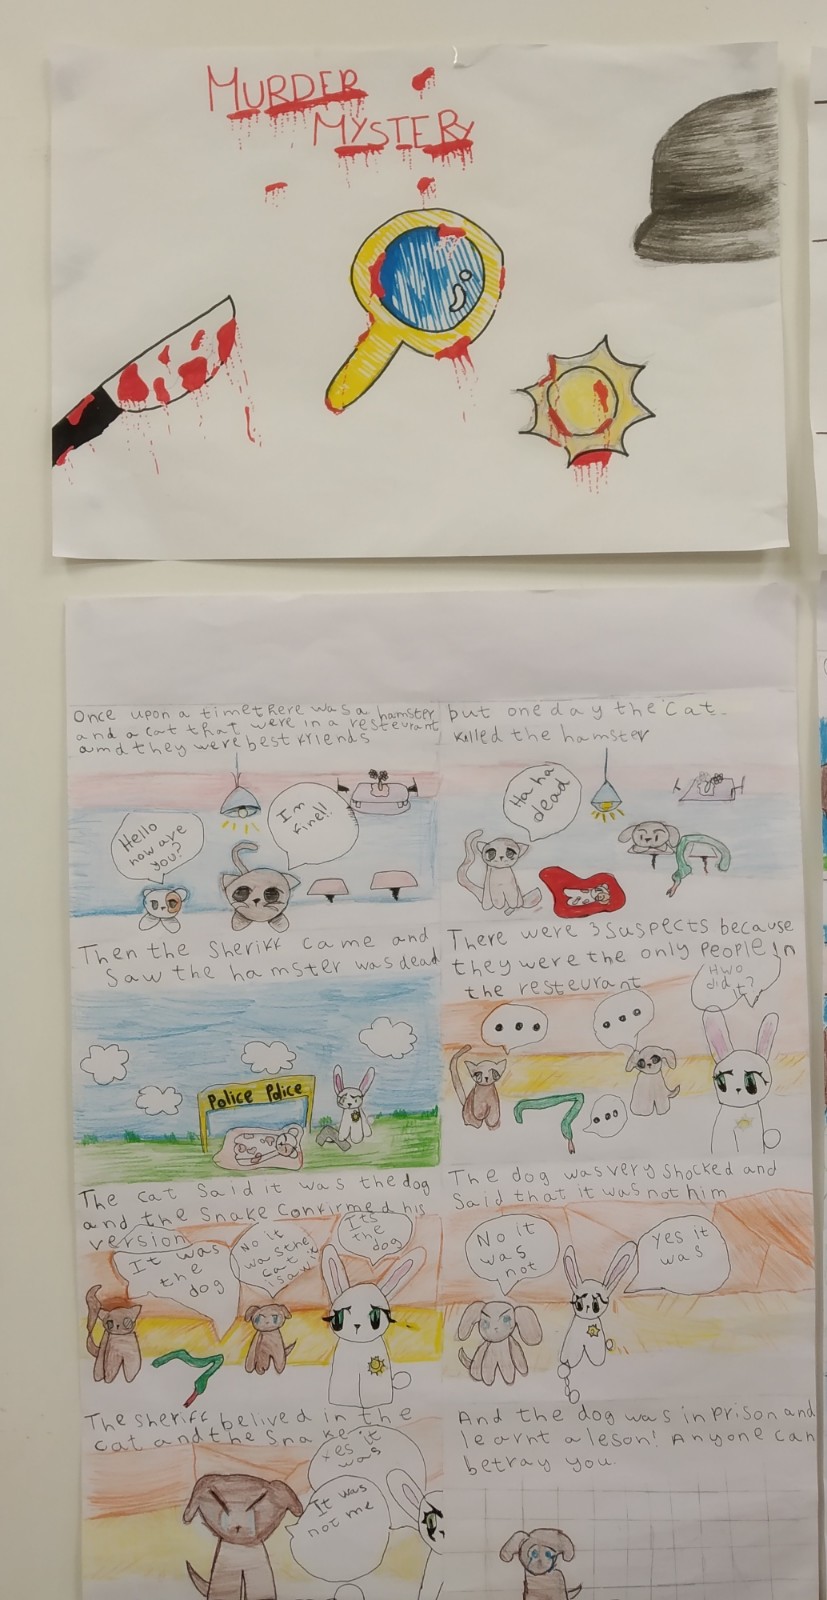 MURDER
MYSTERY
Once upon a time there was a hamster
and a cat that were in a restaurant
amd they were best friends
Hello
how are
you?
I'm
fine!!
but one day the cat
killed the hamster
Ha ha
dead
Then the Sheriff came and
Saw the hamster was dead
Police Police
There were 3 suspects because
they were the only people in
the resteurant
...
...
...
HWO
did
it?
The cat said it was the dog
and the snake confirmed his
version
It was
the
dog
No it
was the
cat
i saw it
Its
the
dog
The dog was very shocked and
Said that it was not him
No it
was
not
Yes it
was
The sheriff belived in the
cat and the snake
Yes it
was
It was
not me
And the dog was in prison and
learnt a leson! Anyone can
betray you.